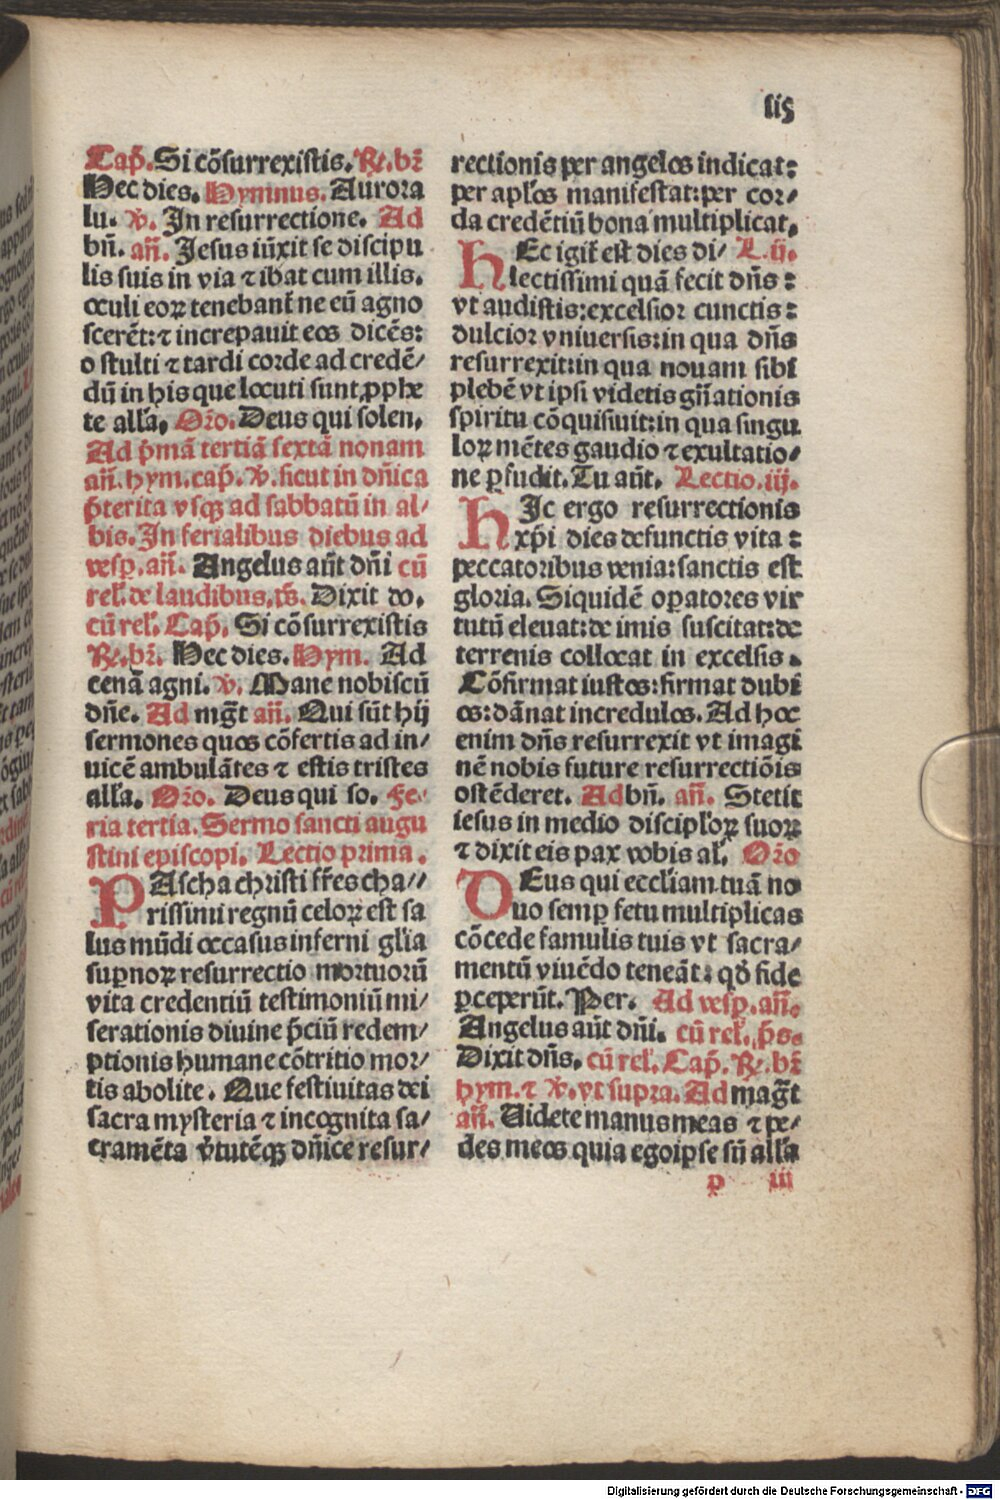 lis
Cap̄. Si cōsurrexistis. ℟. br̄
Hec dies. Hymnus. Aurora
lu. ℣. In resurrectione. Ad
bn̄. an̄. Jesus iūxit se discipu
lis suis in via ⁊ ibat cum illis.
oculi eoꝝ tenebant᷑ ne eū agno
scerēt:⁊ increpauit eos dicēs:
o stulti ⁊ tardi corde ad credē/
dū in his que locuti sunt ꝓphe
te all'a. Or̄o. Deus qui solen.
Ad p̄mā tertiā sextā nonam
an̄. hym. cap̄. ℣. sicut in dn̄ica
p̄terita vsqꝫ ad sabbatū in al/
bis. In ferialibus diebus ad
vesp̱. an̄. Angelus aūt dn̄i cū
rel'. de laudibus. p̄s. Dixit do.
cū rel'. Cap̄. Si cōsurrexistis
℟. br̄. Hec dies. Hym. Ad
cenā agni. ℣. Mane nobiscū
dn̄e. Ad mag̅t an̄. Qui sūt hij
sermones quos cōfertis ad in/
uicē ambulātes ⁊ estis tristes
all'a. Or̄o. Deus qui so. Fe-
ria tertia. Sermo sancti augu
stini episcopi. Lectio prima.
PAscha christi fr̄es cha//
rissimi regnū celoꝝ est sa
lus mūdi occasus inferni gl'ia
suꝑnoꝝ resurrectio mortuorū
vita credentiū testimoniū mi/
serationis diuine p̄ciū redem/
ptionis humane cōtritio mor/
tis abolite. Que festiuitas dei
sacra mysteria ⁊ incognita sa/
cramēta v̄tutēqꝫ dn̄ice resur/
rectionis per angelos indicat:
per apl'os manifestat:per cor/
da credētiū bona multiplicat.
HEc igit᷑ est dies di/ L. ij.
lectissimi quā fecit dn̄s:
vt audistis:excelsior cunctis:
dulcior vniuersis:in qua dn̄s
resurrexit:in qua nouam sibī
plebē vt ipsi videtis gn̄ationis
spiritu cōquisiuit:in qua singu
loꝝ mētes gaudio ⁊ exultatio/
ne ꝑfudit. Tu aūt. Lectio. iij.
HIc ergo resurrectionis
xp̄i dies defunctis vita:
peccatoribus venia:sanctis est
gloria. Siquidē oꝑatores vir
tutū eleuat:de imis suscitat:de
terrenis collocat in excelsis.
Cōfirmat iustos:firmat dubī
os:dānat incredulos. Ad hoc
enim dn̄s resurrexit vt imagī
nē nobis future resurrectiōis
ostēderet. Ad bn̄. an̄. Stetit
iesus in medio discipl'oꝝ suoꝝ
⁊ dixit eis pax vobis al'. Or̄o
DEus qui eccl'iam tuā no
uo semꝑ fetu multiplicas
cōcede famulis tuis vt sacra/
mentū viuēdo teneāt: qd̄ fide
ꝑceperūt. Per. Ad vesp̱. an̄.
Angelus aūt dn̄i. cū rel'. p̄s.
Dixit dn̄s. cū rel'. Cap̄. ℟. br̄
hym. ⁊ ℣. vt supra. Ad mag̅t
an̄. Uidete manus meas ⁊ pe/
des meos quia ego ipse sū all'a
p iii
Digitalisierung gefördert durch die Deutsche Forschungsgemeinschaft - DFG